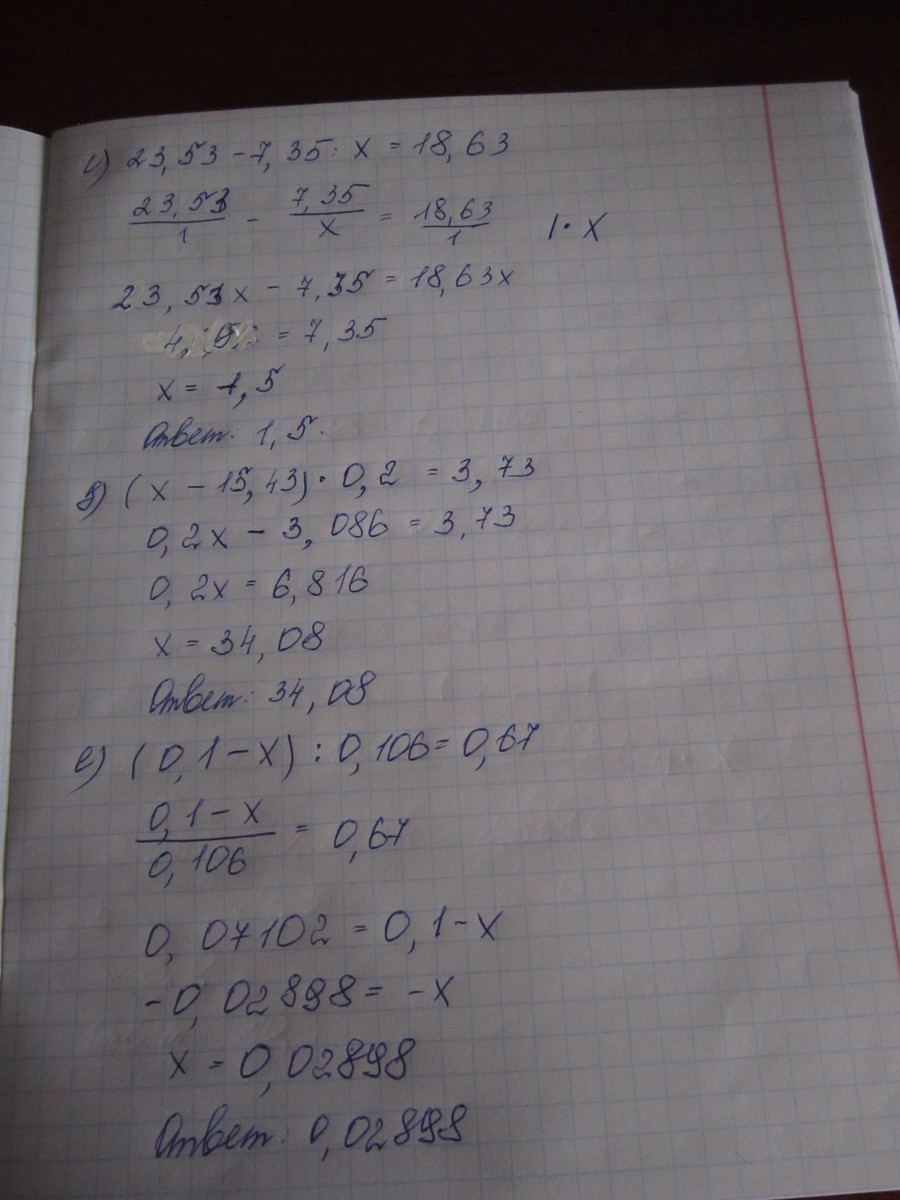 с) 23,53 - 7,35 : x = 18,63
23,53/1 - 7,35/x = 18,63/1 | · x
23,53x - 7,35 = 18,63x
= 7,35
x = 1,5
Ответ: 1,5.
д) (x - 15,43) · 0,2 = 3,73
0,2x - 3,086 = 3,73
0,2x = 6,816
x = 34,08
Ответ: 34,08
е) (0,1 - x) : 0,106 = 0,67
0,1 - x/0,106 = 0,67
0,07102 = 0,1 - x
-0,02898 = -x
x = 0,02898
Ответ: 0,02898